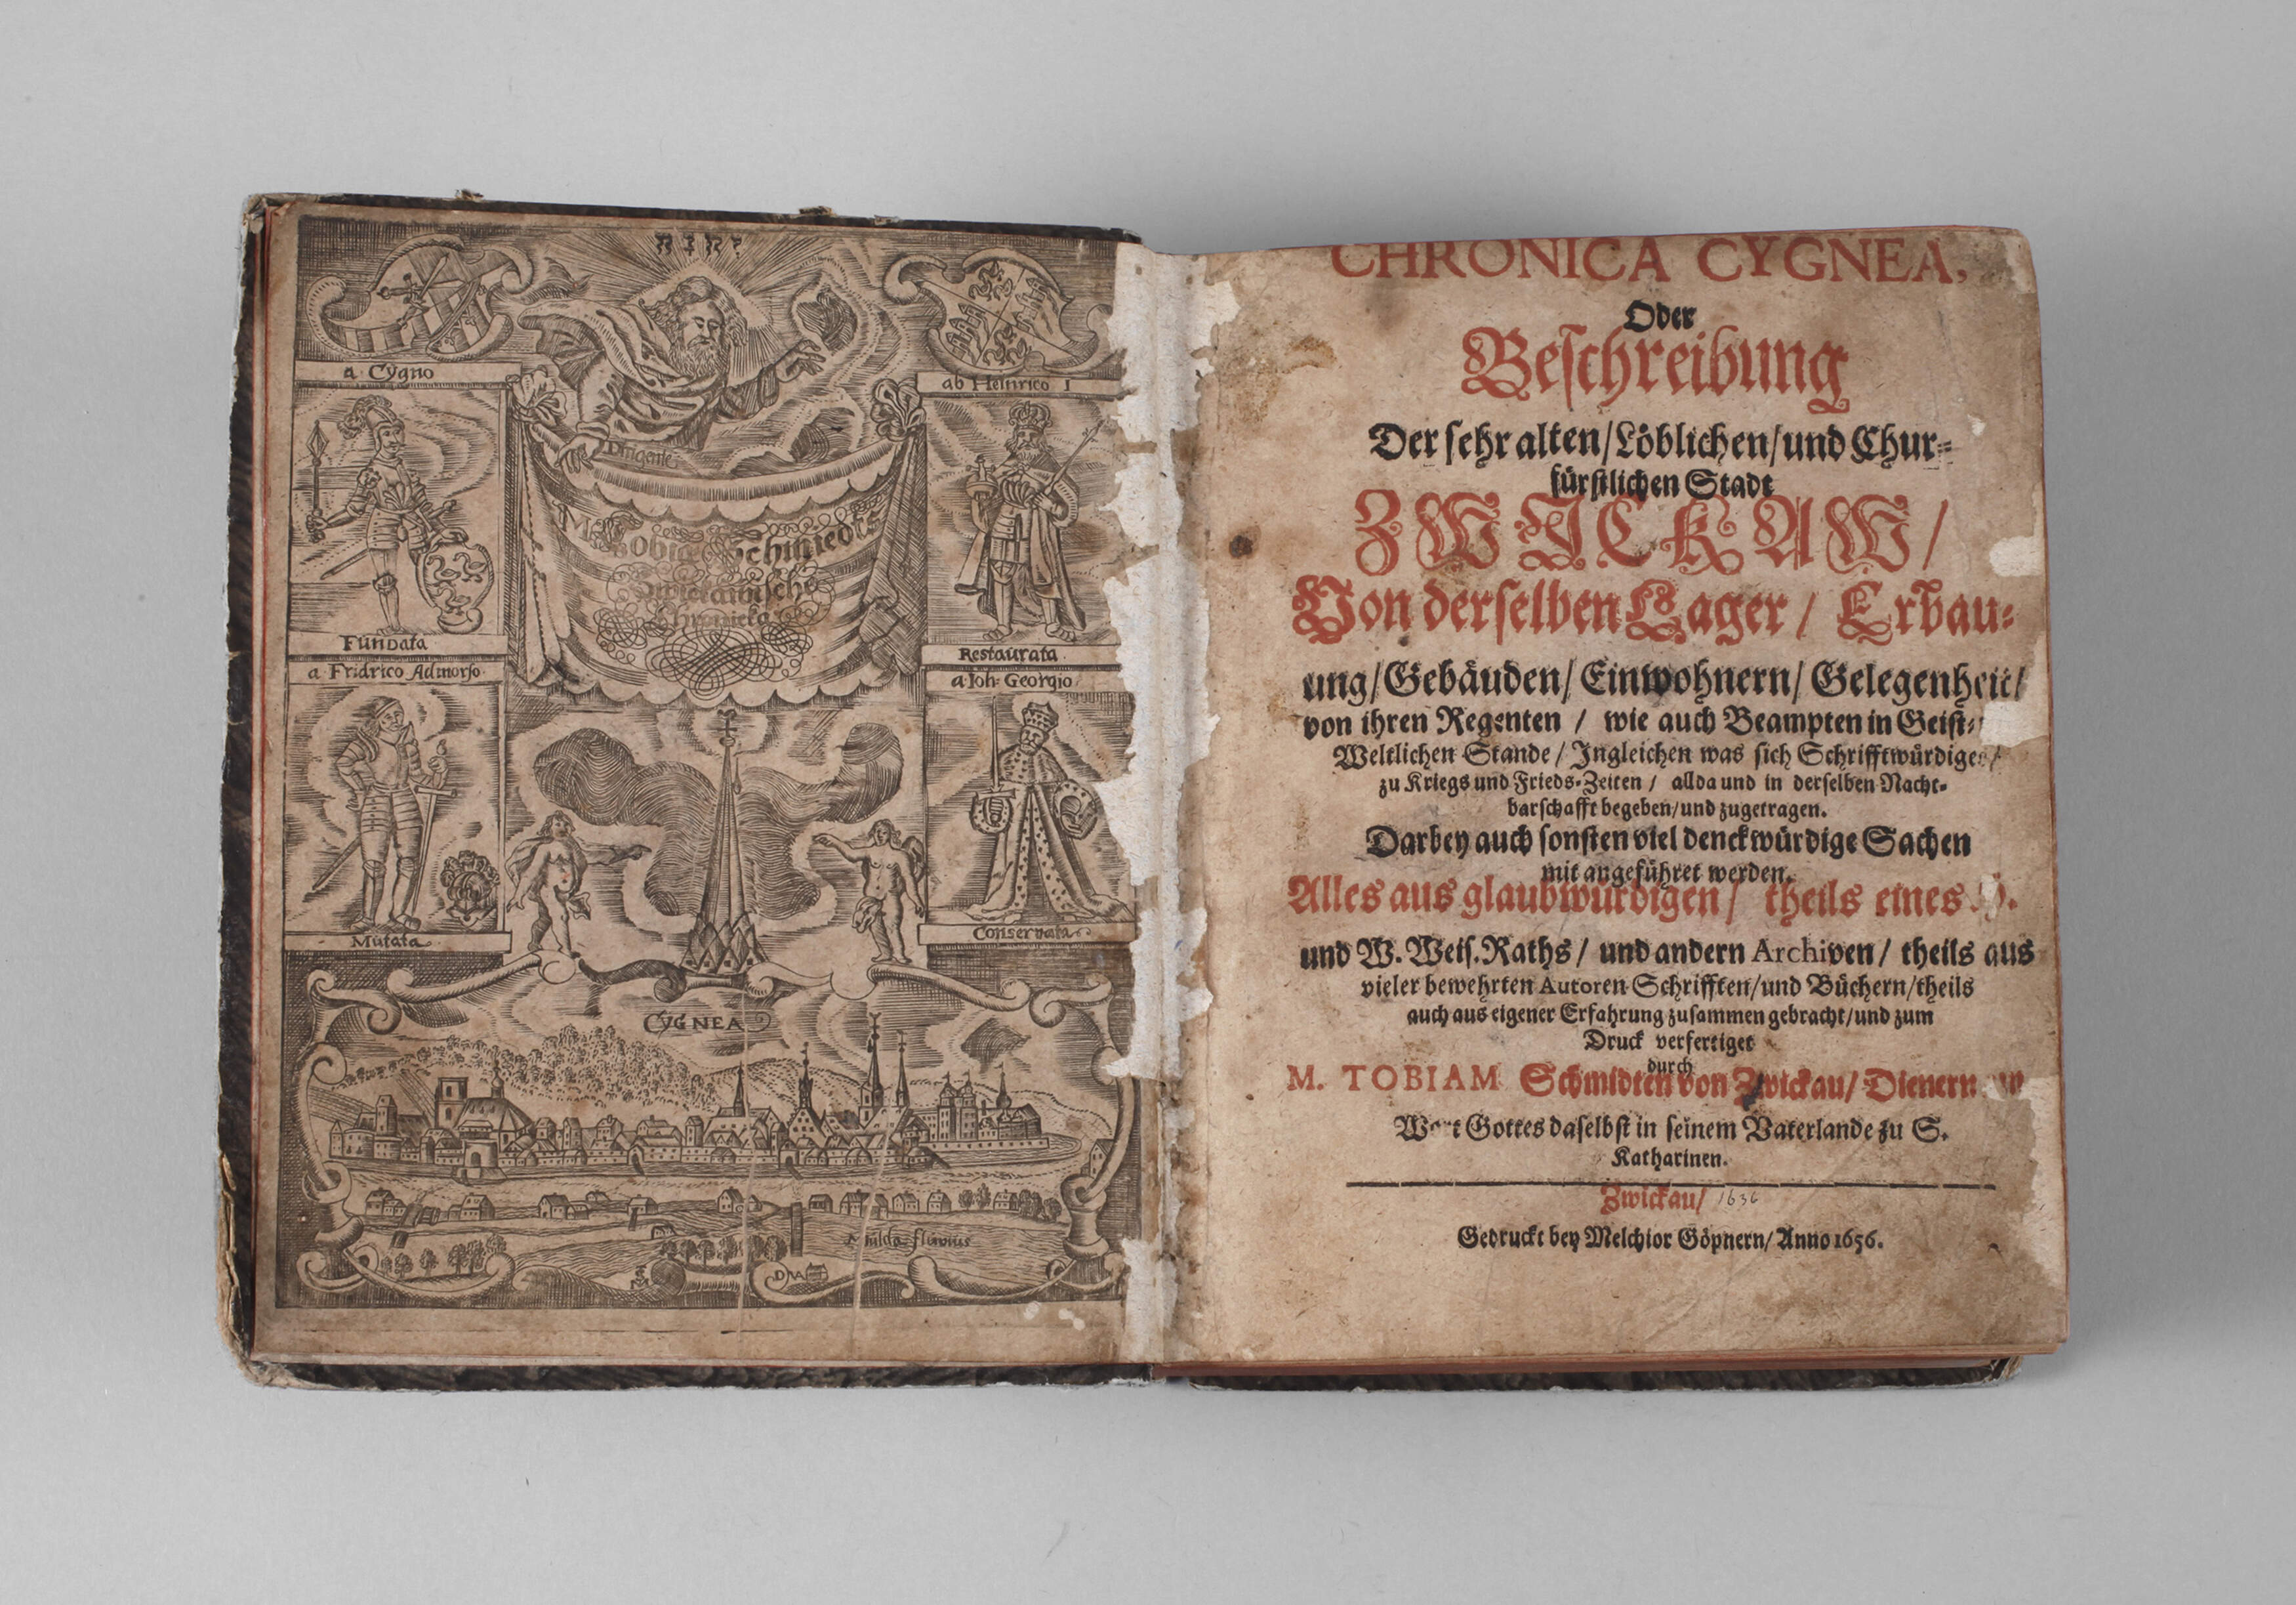 יהוה
a Cygno
ab Heinrico I
Dirigente
M. Tobiæ Schmiedts
Zwickauische
Chronicka
Fundata
Restaurata
a Fridrico Admorso
a Joh: Georgio
Mutata
Conservata
CYGNEA
Mulda fluvius
CHRONICA CYGNEA,
Oder
Beschreibung
Der sehr alten/Löblichen/und Chur-
fürstlichen Stadt
ZWICKAW/
Von derselben Lager/ Erbau-
ung/Gebäuden/Einwohnern/Gelegenheit/
von ihren Regenten/ wie auch Beampten in Geist-
Weltlichen Stande/Ingleichen was sich Schrifftwürdiges/
zu Kriegs und Frieds-Zeiten/ allda und in derselben Nacht-
barschafft begeben/und zugetragen.
Darbey auch sonsten viel denckwürdige Sachen
mit angeführet werden.
Alles aus glaubwürdigen/ theils eines
und W. Weis. Raths/ und andern Archiven/ theils aus
vieler bewehrten Autoren Schrifften/und Büchern/theils
auch aus eigener Erfahrung zusammen gebracht/und zum
Druck verfertiget
durch
M. TOBIAM Schmidten von Zwickau/ Dienern
Wort Gottes daselbst in seinem Vaterlande zu S.
Katharinen.
Zwickau/ 1656
Gedruckt bey Melchior Göpnern/Anno 1656.